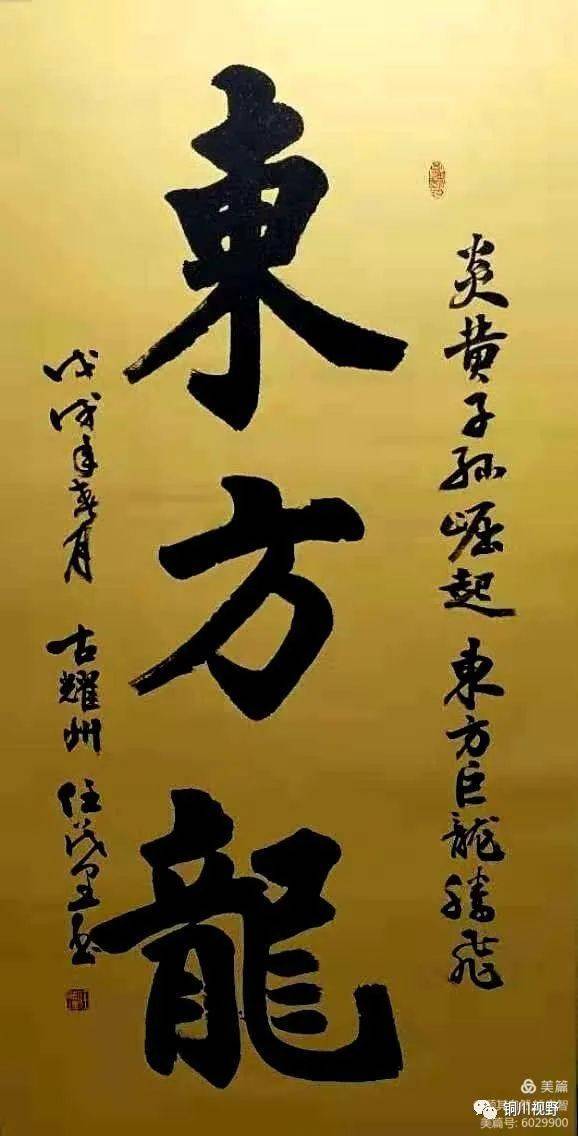 炎黄子孫崛起 東方巨龍騰飛
東方龍
戊戌年春月 古耀州 任茂
美篇
铜川视野
美篇号: 6029900